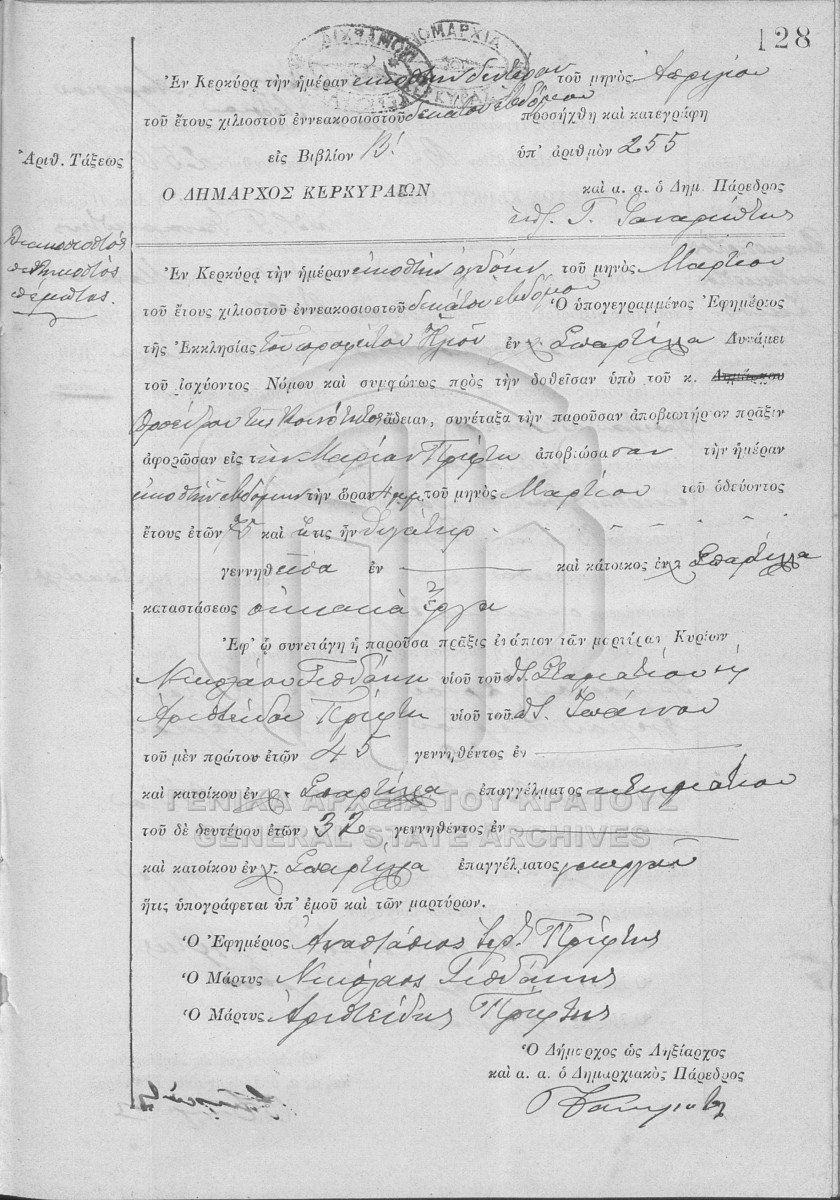 128
ΝΟΜΑΡΧΙΑ
ΚΕΡΚΥΡΑΣ
Ἐν Κερκύρᾳ τὴν ἡμέραν εἰκοστὴν δευτέραν τοῦ μηνὸς Ἀπριλίου
τοῦ ἔτους χιλιοστοῦ ἐννεακοσιοστοῦ δεκάτου ἑβδόμου προσήχθη καὶ κατεγράφη
εἰς Βιβλίον Β! ὑπ' ἀριθμὸν 255
Ἀριθ. Τάξεως
Ὁ ΔΗΜΑΡΧΟΣ ΚΕΡΚΥΡΑΙΩΝ καὶ α. α. ὁ Δημ. Πάρεδρος
διακοσιοστὸς
πεντηκοστὸς
πέμπτος.
Ἐν Κερκύρᾳ τὴν ἡμέραν εἰκοστὴν ὀγδόην τοῦ μηνὸς Μαρτίου
τοῦ ἔτους χιλιοστοῦ ἐννεακοσιοστοῦ δεκάτου ἑβδόμου Ὁ ὑπογεγραμμένος Ἐφημέριος
τῆς Ἐκκλησίας τοῦ προφήτου Ἠλιοῦ ἐν χ. Σπαρτύλλα Δυνάμει
τοῦ ἰσχύοντος Νόμου καὶ συμφώνως πρὸς τὴν δοθεῖσαν ὑπὸ τοῦ κ. Δημάρχου
Προέδρου τῆς Κοινότητος ἄδειαν, συνέταξα τὴν παροῦσαν ἀποβιωτήριον πρᾶξιν
ἀφορῶσαν εἰς τὴν Μαρίαν Πρίφτη ἀποβιώσασαν τὴν ἡμέραν
εἰκοστὴν ἑβδόμην τὴν ὥραν 4 μ.μ. τοῦ μηνὸς Μαρτίου τοῦ ὁδεύοντος
ἔτους ἐτῶν 75 καὶ ἥτις ἦν θυγάτηρ
γεννηθεῖσα ἐν καὶ κάτοικος ἐν χ Σπαρτύλλα
καταστάσεως οἰκιακὰ ἔργα
Ἐφ' ᾧ συνετάγη ἡ παροῦσα πρᾶξις ἐνώπιον τῶν μαρτύρων Κυρίων
Νικολάου Γισδάκη υἱοῦ τοῦ Σταματίου κ
Ἀριστείδου Πρίφτη υἱοῦ τοῦ Ἰωάννου
τοῦ μὲν πρώτου ἐτῶν 45 γεννηθέντος ἐν
καὶ κατοίκου ἐν χ. Σπαρτύλλα ἐπαγγέλματος κτηματίου
ΓΕΝΙΚΑ ΑΡΧΕΙΑ ΤΟΥ ΚΡΑΤΟΥΣ
τοῦ δὲ δευτέρου ἐτῶν 32 γεννηθέντος ἐν
GENERAL STATE ARCHIVES
καὶ κατοίκου ἐν χ. Σπαρτύλλα ἐπαγγέλματος γεωργοῦ
ἥτις ὑπογράφεται ὑπ' ἐμοῦ καὶ τῶν μαρτύρων.
Ὁ Ἐφημέριος Ἀναστάσιος Ἱερ. Πρίφτης
Ὁ Μάρτυς Νικόλαος Γισδάκης
Ὁ Μάρτυς Ἀριστείδης Πρίφτης
Ὁ Δήμαρχος ὡς Ληξίαρχος
καὶ α. α. ὁ Δημαρχιακὸς Πάρεδρος